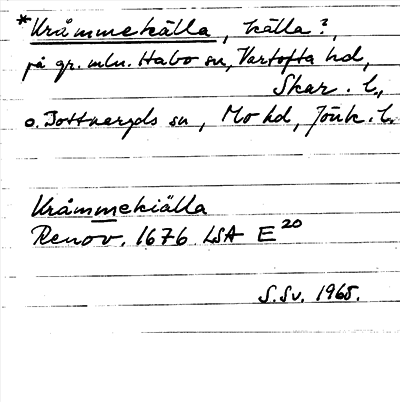 *Kråmmekälla, källa?,
på gr. mln. Habo sn, Vartofta hd,
Skar. l.,
o. Bottnaryds sn, Mo hd, Jönk. l.
Kråmmekiälla
Renov. 1676 LSA E20
S.Sv. 1965.